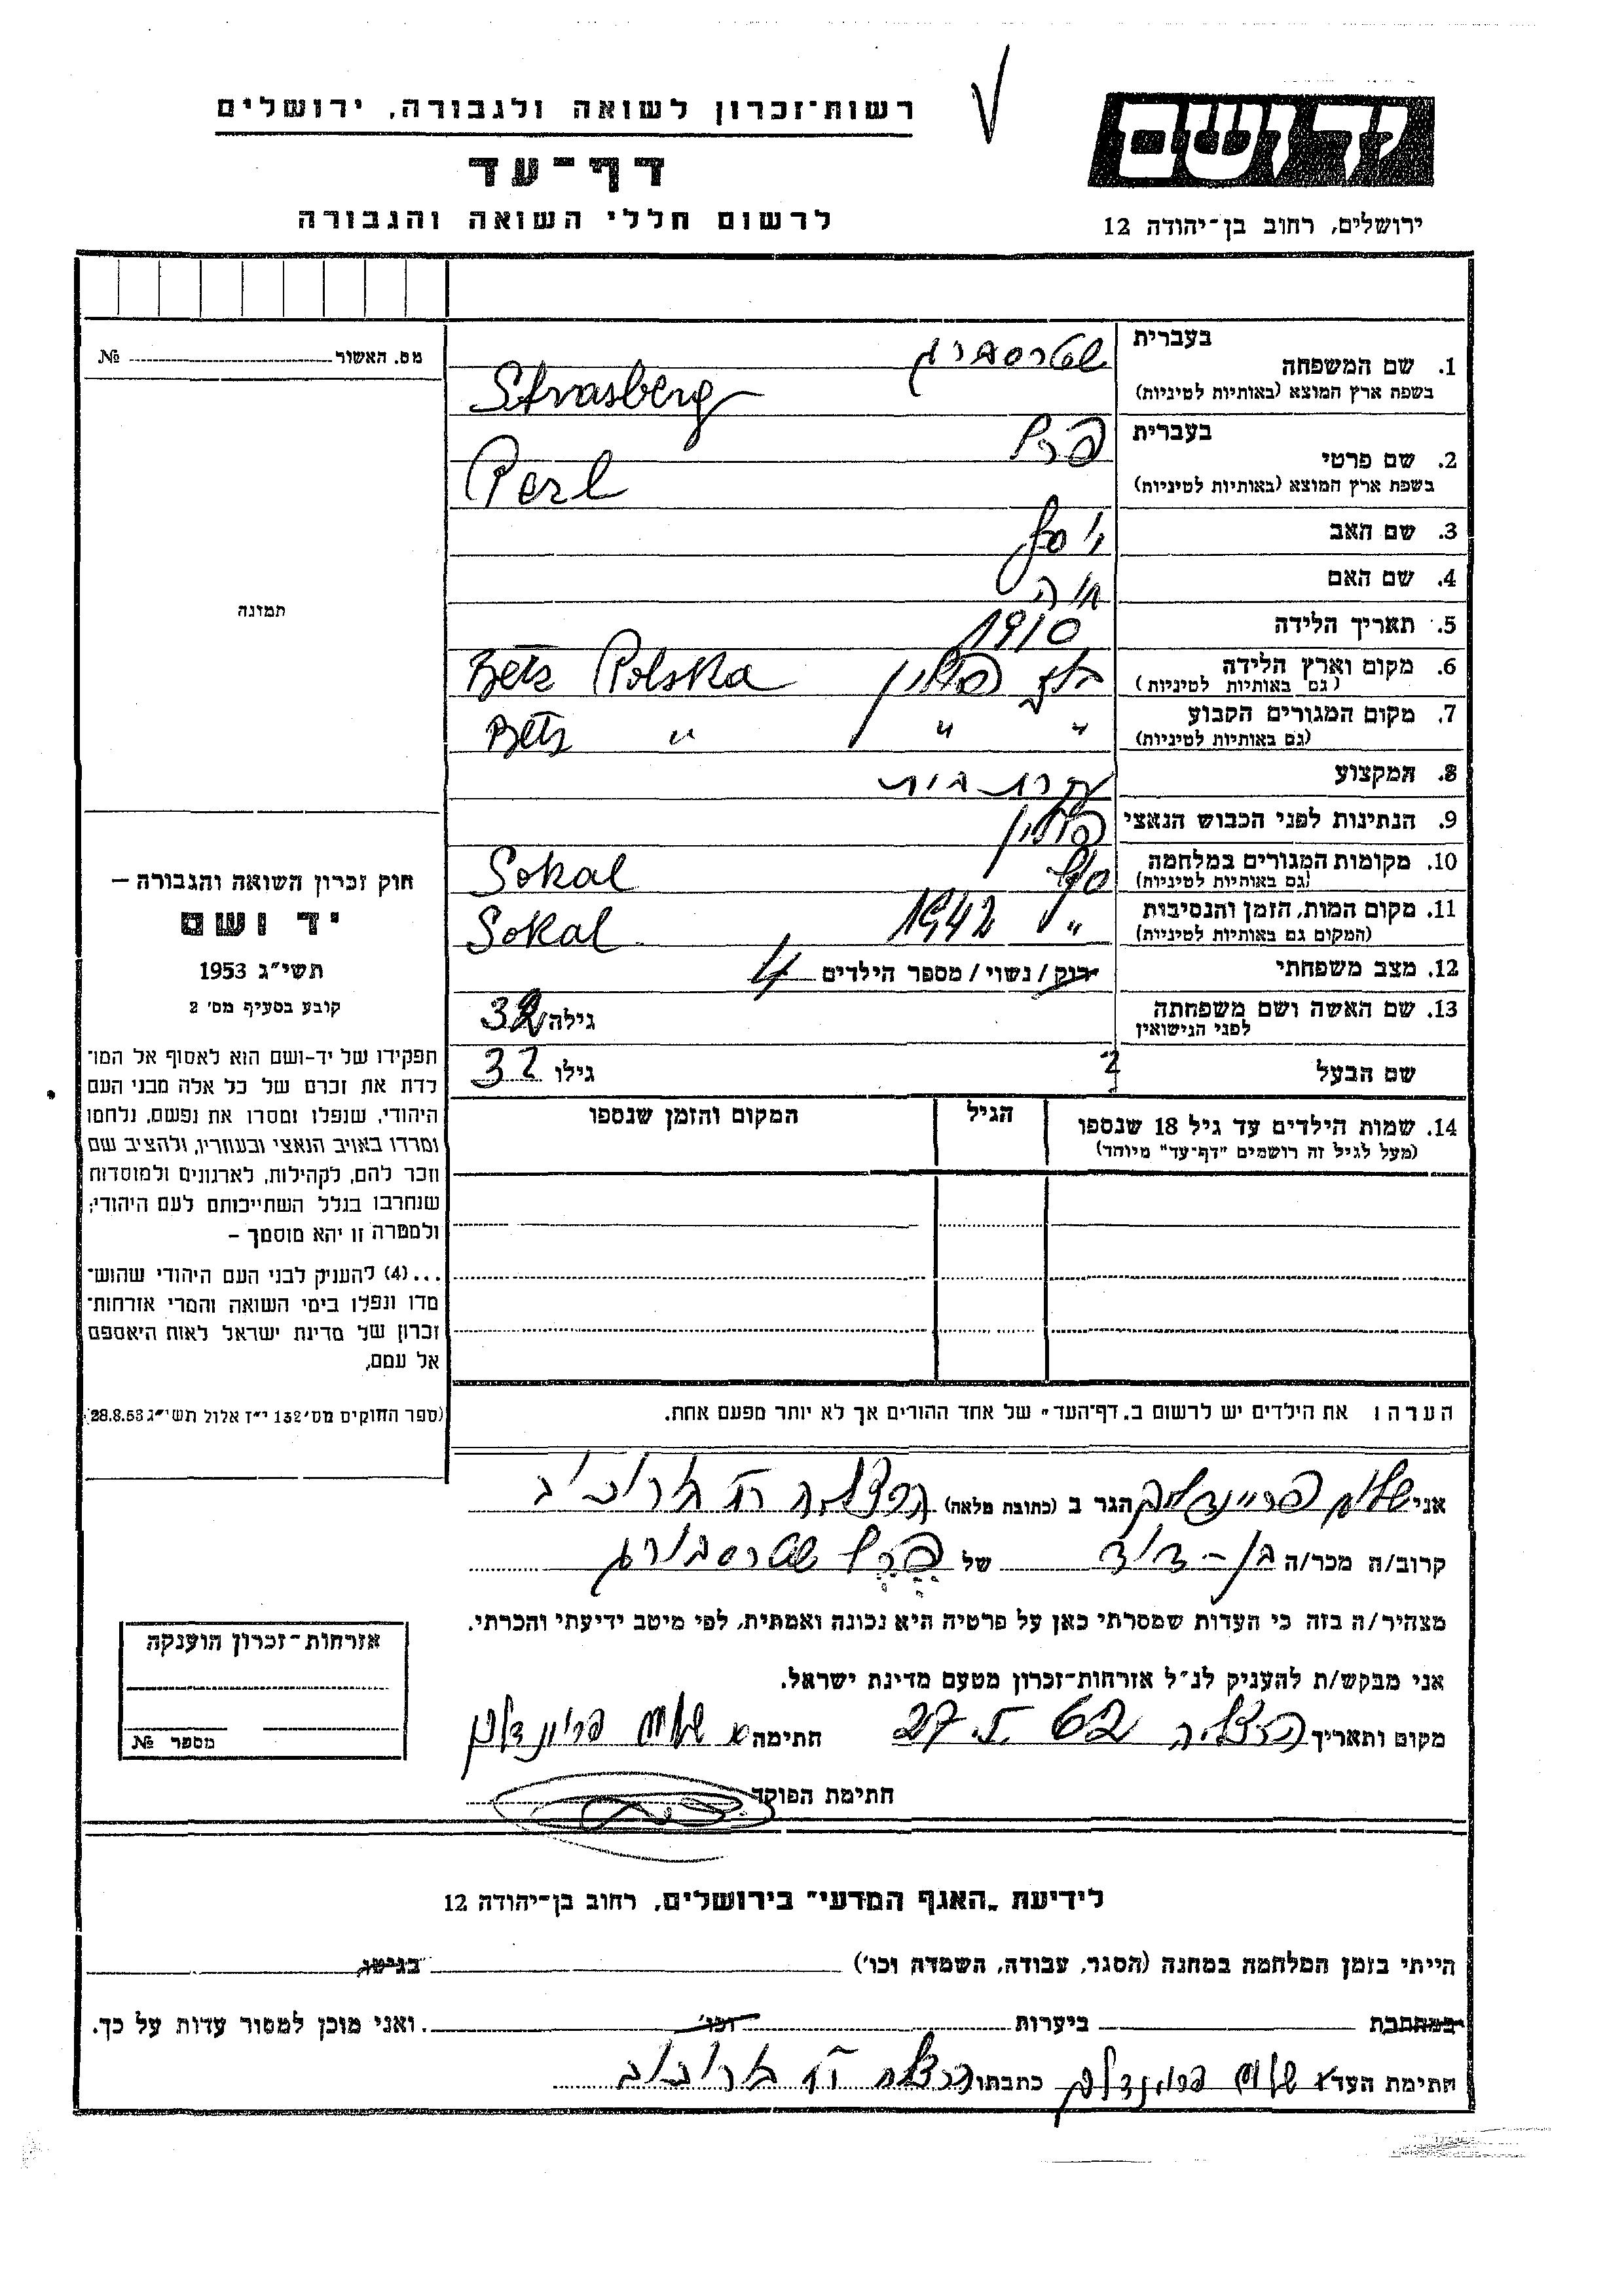 רשות־זכרון לשואה ולגבורה, ירושלים
דף־עד
לרשום חללי השואה והגבורה
יד ושם
ירושלים, רחוב בן־יהודה 12
מס. האשור № 
תמונה
בעברית שטרסברג
1. שם המשפחה
בשפת ארץ המוצא (באותיות לטיניות) Strasberg
בעברית פרל
2. שם פרטי
בשפת ארץ המוצא (באותיות לטיניות) Perl
3. שם האב יוסף
4. שם האם חיה
5. תאריך הלידה 1910
6. מקום וארץ הלידה בלז פולין Bełz Polska
(גם באותיות לטיניות)
7. מקום המגורים הקבוע " " " Bełz
(גם באותיות לטיניות)
8. המקצוע עקרת בית
9. הנתינות לפני הכבוש הנאצי פולין
10. מקומות המגורים במלחמה סוקל Sokal
(גם באותיות לטיניות)
11. מקום המות, הזמן והנסיבות " 1942 Sokal
(המקום גם באותיות לטיניות)
12. מצב משפחתי רוק / נשוי / מספר הילדים 4
13. שם האשה ושם משפחתה גילה 32
לפני הנישואין
שם הבעל ? גילו 32
14. שמות הילדים עד גיל 18 שנספו הגיל המקום והזמן שנספו
(מעל לגיל זה רושמים "דף־עד" מיוחד)
הערה: את הילדים יש לרשום ב„דף־העד" של אחד ההורים אך לא יותר מפעם אחת.
חוק זכרון השואה והגבורה –
יד ושם
תשי״ג 1953
קובע בסעיף מס' 2
תפקידו של יד-ושם הוא לאסוף אל המו־
לדת את זכרם של כל אלה מבני העם
היהודי, שנפלו ומסרו את נפשם, נלחמו
ומרדו באויב הנאצי ובעוזריו, ולהציב שם
וזכר להם, לקהילות, לארגונים ולמוסדות
שנחרבו בגלל השתייכותם לעם היהודי;
ולמטרה זו יהא מוסמך –
...(4) להעניק לבני העם היהודי שהוש־
מדו ונפלו בימי השואה והמרי אזרחות־
זכרון של מדינת ישראל לאות היאספם
אל עמם,
(ספר החוקים מס' 132 י״ז אלול תשי״ג 28.8.53)
אני שלום הגר ב (כתובת מלאה) הרצליה
קרוב/ה מכר/ה בן-דוד של פרל שטרסבורג
מצהיר/ה בזה כי העדות שמסרתי כאן על פרטיה היא נכונה ואמתית, לפי מיטב ידיעתי והכרתי.
אני מבקש/ת להעניק לנ״ל אזרחות־זכרון מטעם מדינת ישראל.
מקום ותאריך הרצליה 27. 5. 62 חתימה x שלום
חתימת הפוקד
אזרחות־זכרון הוענקה
מספר №
לידיעת „האגף המדעי" בירושלים, רחוב בן־יהודה 12
הייתי בזמן המלחמה במחנה (הסגר, עבודה, השמדה וכו') בגיטו
במחתרת ביערות וכו' ואני מוכן למסור עדות על כך.
חתימת העד x שלום כתבתו הרצליה